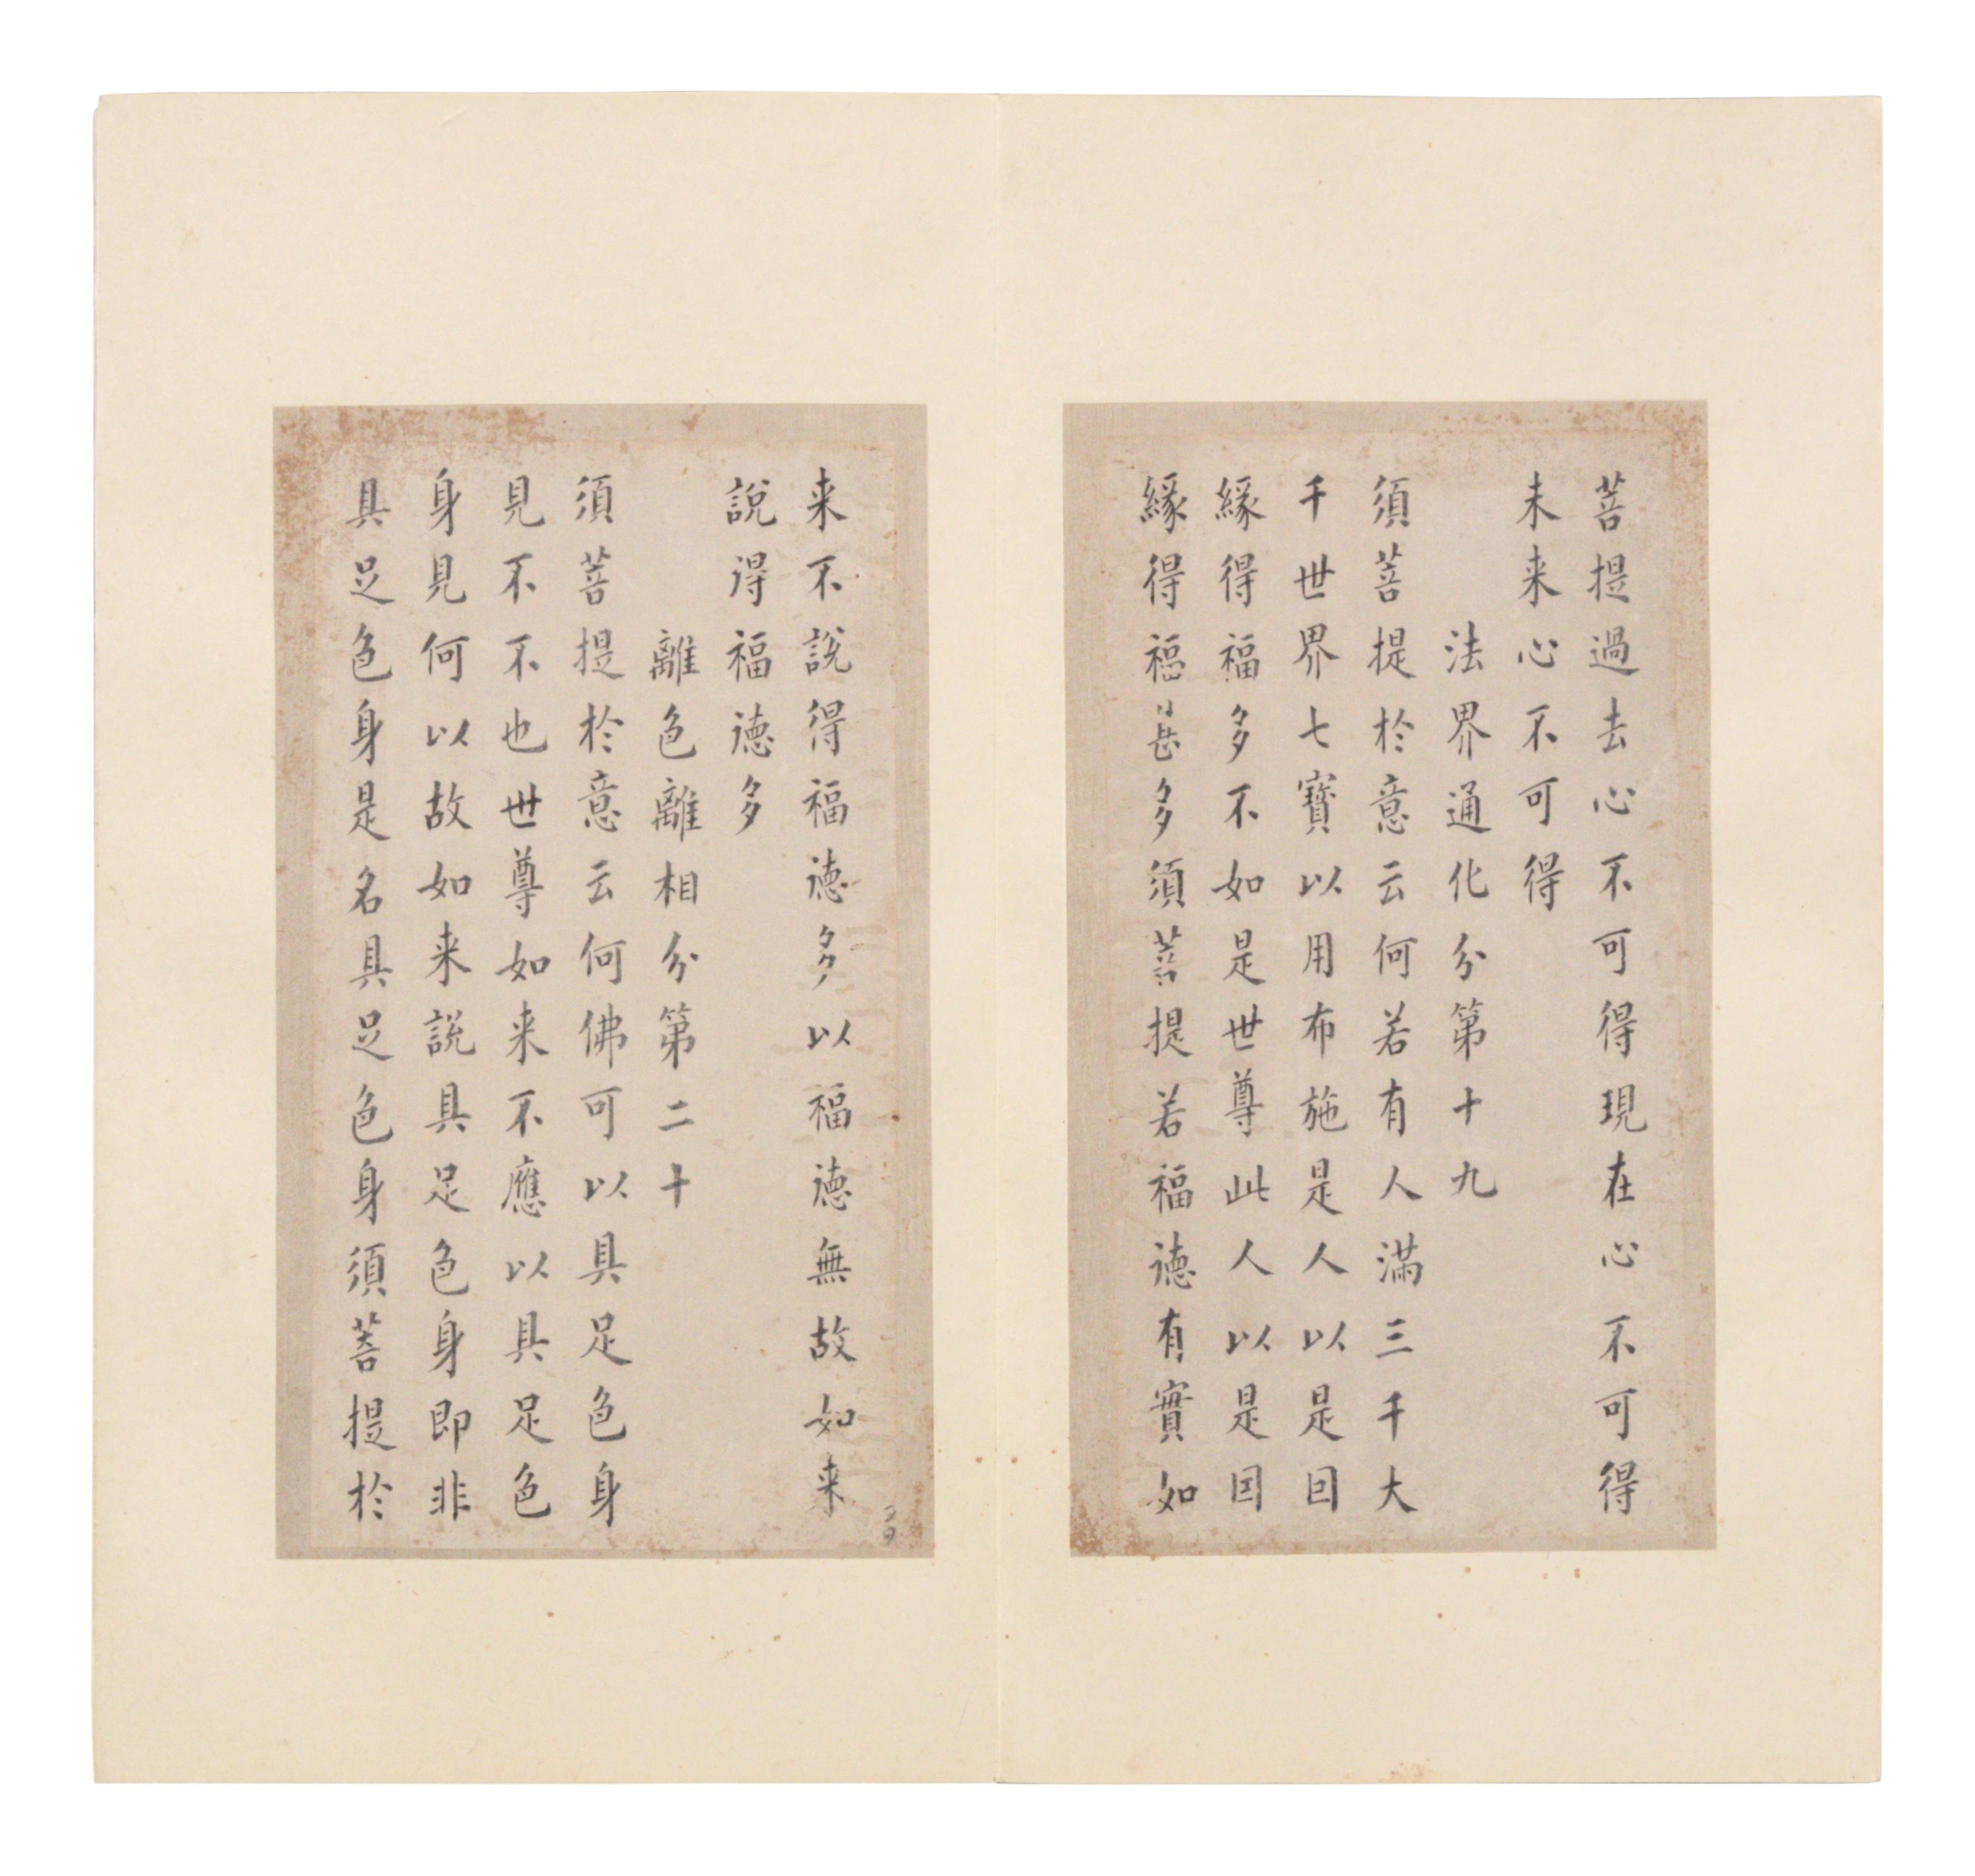 菩提過去心不可得現在心不可得
未来心不可得
法界通化分第十九
須菩提於意云何若有人滿三千大
千世界七寶以用布施是人以是因
緣得福多不如是世尊此人以是因
緣得福甚多須菩提若福德有實如
来不說得福德多以福德無故如来
說得福德多
離色離相分第二十
須菩提於意云何佛可以具足色身
見不不也世尊如来不應以具足色
身見何以故如来說具足色身即非
具足色身是名具足色身須菩提於